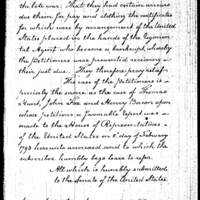 the late war. That they had certain arrears
due them for pay and clothing the certificates
for which were by arrangement of the United
States placed on the hands of the Regimental
Agent who became a bankrupt, whereby
the Petitioners were prevented receiving
their just due. They therefore pray relief.
The case of the Petitioners is
precisely the same as the case of Thomas
Hunt, John Fee and Henry Bacon upon
whose petitions a favorable report was
made to the House of Representatives
of the United States on 5 day of February
1793 hereunto annexed and to which the
subscriber humbly begs leave to refer.
All which is humbly submitted
to the Senate of the United States.